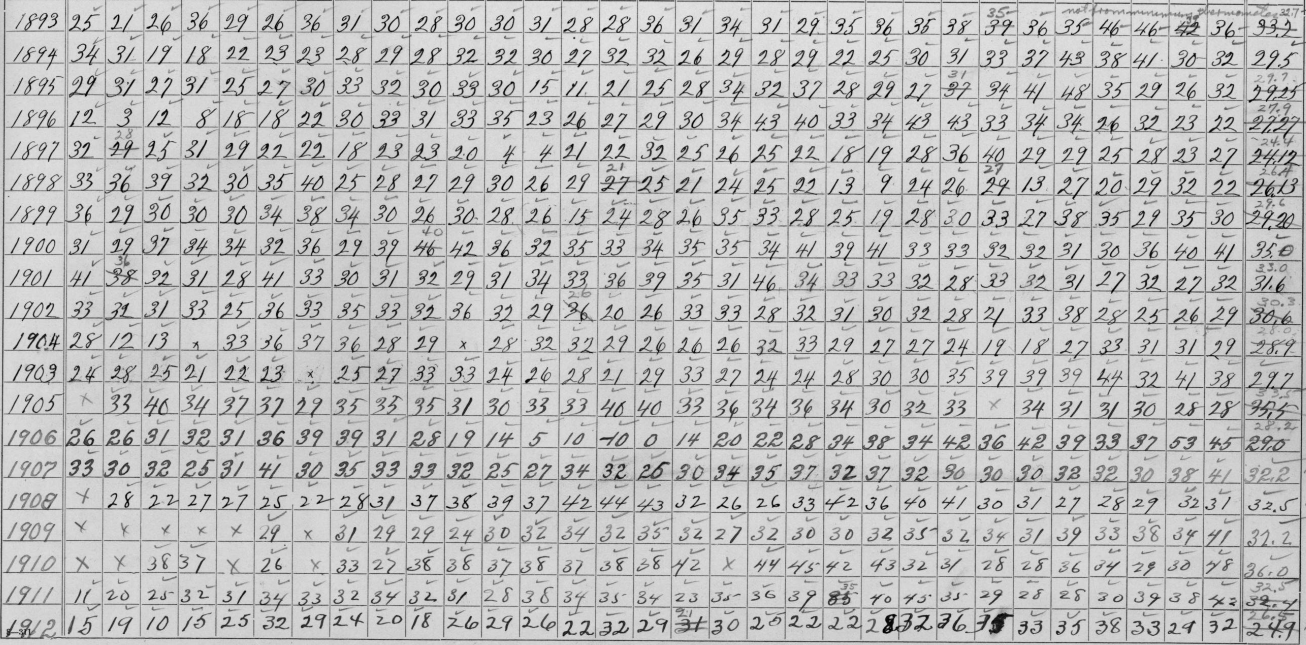 1893 25 21 26 36 29 26 36 31 30 28 30 30 31 28 28 36 31 34 31 29 35 36 35 38 39 36 35 46 46 42 36 33.2
1894 34 31 19 18 22 23 23 28 29 28 32 32 30 27 32 32 26 29 28 29 22 25 30 31 33 37 43 38 41 30 32 29.5
1895 29 31 27 31 25 27 30 33 32 30 33 30 15 11 21 25 28 34 32 37 28 29 27 37 34 41 48 35 29 26 32 29.25
1896 12 3 12 8 18 18 22 30 33 31 33 35 23 26 27 29 30 34 43 40 33 34 43 43 33 34 34 26 32 23 22 27.27
1897 32 29 25 31 29 22 22 18 23 23 20 4 4 21 22 32 25 26 25 22 18 19 28 36 40 29 29 25 28 23 27 24.12
1898 33 36 39 32 30 35 40 25 28 27 29 30 26 29 27 25 21 24 25 22 13 9 24 26 29 13 27 20 29 32 22 26.13
1899 36 29 30 30 30 34 38 34 30 26 30 28 26 15 24 28 26 35 33 28 25 19 28 30 33 27 38 35 29 35 30 29.20
1900 31 29 37 34 34 32 36 29 39 46 42 36 32 35 33 34 35 35 34 41 39 41 33 33 32 32 31 30 36 40 41 35.0
1901 41 38 32 31 28 41 33 30 31 32 29 31 34 33 36 39 35 31 46 34 33 33 32 28 33 32 31 27 32 27 32 31.6
1902 33 32 31 33 25 36 33 35 33 32 36 32 29 36 20 26 33 33 28 32 31 30 32 28 21 33 38 28 25 26 29 30.6
1904 28 12 13 x 33 36 37 36 28 29 x 28 32 32 29 26 26 26 32 33 29 27 27 24 19 18 27 33 31 31 29 28.9
1903 24 28 25 21 22 23 x 25 27 33 33 24 26 28 21 29 33 27 24 24 28 30 30 35 39 39 39 44 32 41 38 29.7
1905 x 33 40 34 37 37 29 35 35 35 31 30 33 33 40 40 33 36 34 36 34 30 32 33 x 34 31 31 30 28 28 35.5
1906 26 26 31 32 31 36 39 39 31 28 19 14 5 10 -10 0 14 20 22 28 34 38 34 42 36 42 39 33 37 53 45 29.0
1907 33 30 32 25 31 41 30 35 33 33 32 25 27 34 32 25 30 34 35 37 32 37 32 30 30 30 32 32 30 38 41 32.2
1908 x 28 22 27 27 25 22 28 31 37 38 39 37 42 44 43 32 26 26 33 42 36 40 41 30 31 27 28 29 32 31 32.5
1909 x x x x x 29 x 31 29 29 24 30 32 34 32 35 32 27 32 30 30 32 35 32 34 31 39 33 38 34 41 32.2
1910 x x 38 37 x 26 x 33 27 38 38 37 38 37 38 38 42 x 44 45 42 43 32 31 28 28 36 34 29 30 28 36.0
1911 11 20 25 32 31 34 33 32 34 32 31 28 38 34 35 34 23 35 36 39 35 40 45 35 29 28 28 30 39 38 42 32.4
1912 15 19 10 15 25 32 29 24 20 18 26 29 26 22 32 29 31 30 25 22 22 28 32 36 35 33 35 38 33 29 32 24.9